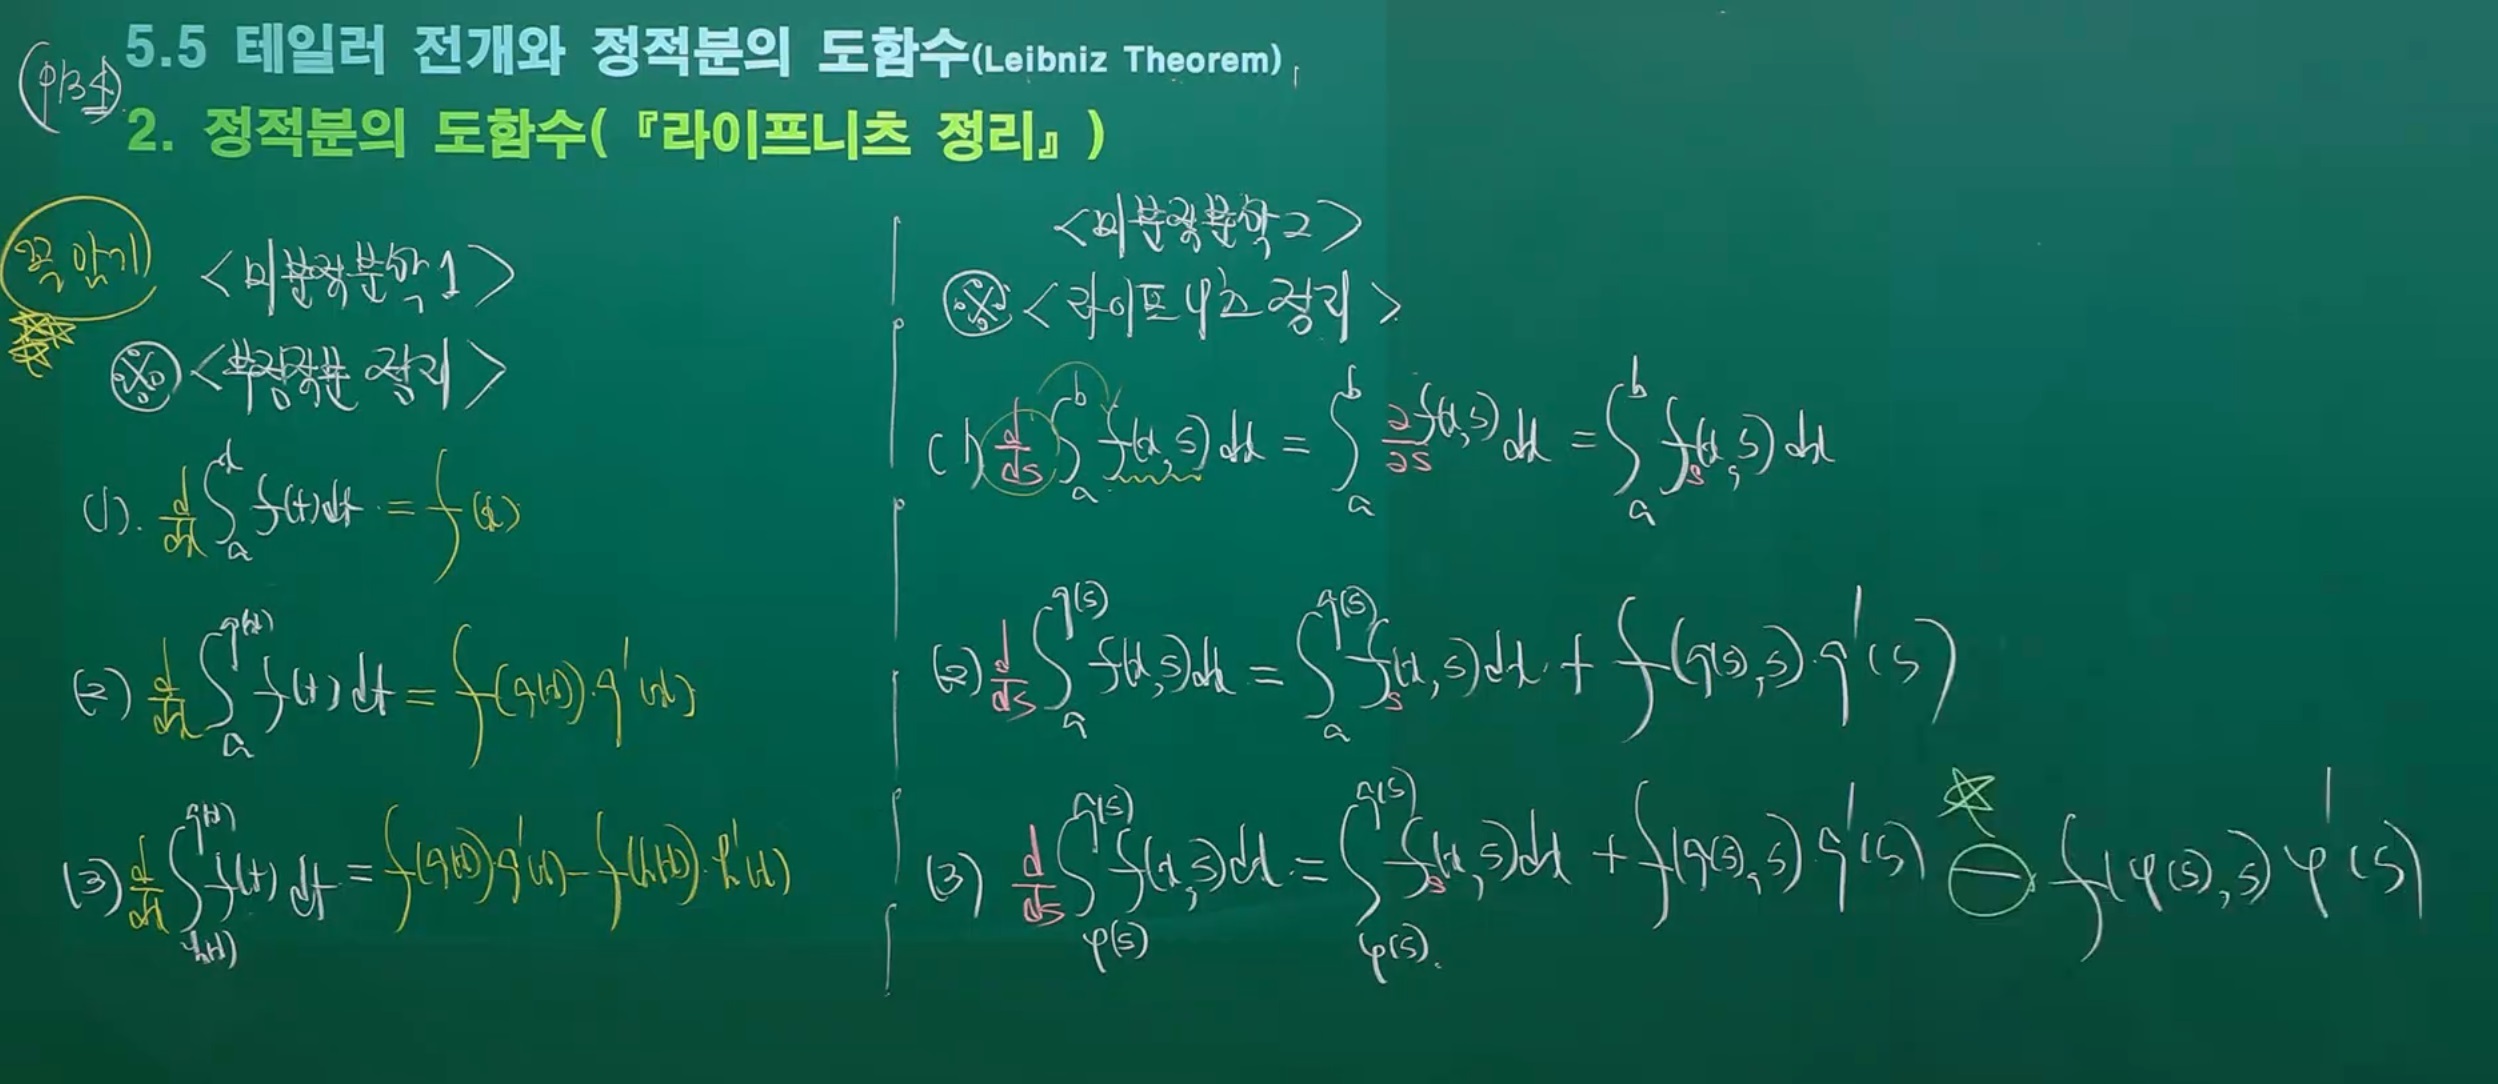 5.5 테일러 전개와 정적분의 도함수(Leibniz Theorem)
(p134)
2. 정적분의 도함수(『라이프니츠 정리』)
꼭 암기
<미분적분학1>
※<부정적분 정리>
(1). d/dx ∫_a^x f(t)dt = f(x)
(2) d/dx ∫_a^{g(x)} f(t)dt = f(g(x))·g'(x)
(3) d/dx ∫_{h(x)}^{g(x)} f(t)dt = f(g(x))·g'(x) - f(h(x))·h'(x)
<미분적분학2>
※<라이프니츠 정리>
(1) d/ds ∫_a^b f(x,s)dx = ∫_a^b ∂/∂s f(x,s)dx = ∫_a^b f_s(x,s)dx
(2) d/ds ∫_a^{g(s)} f(x,s)dx = ∫_a^{g(s)} f_s(x,s)dx + f(g(s),s)·g'(s)
(3) d/ds ∫_{φ(s)}^{g(s)} f(x,s)dx = ∫_{φ(s)}^{g(s)} f_s(x,s)dx + f(g(s),s)·g'(s) - f(φ(s),s)φ'(s)